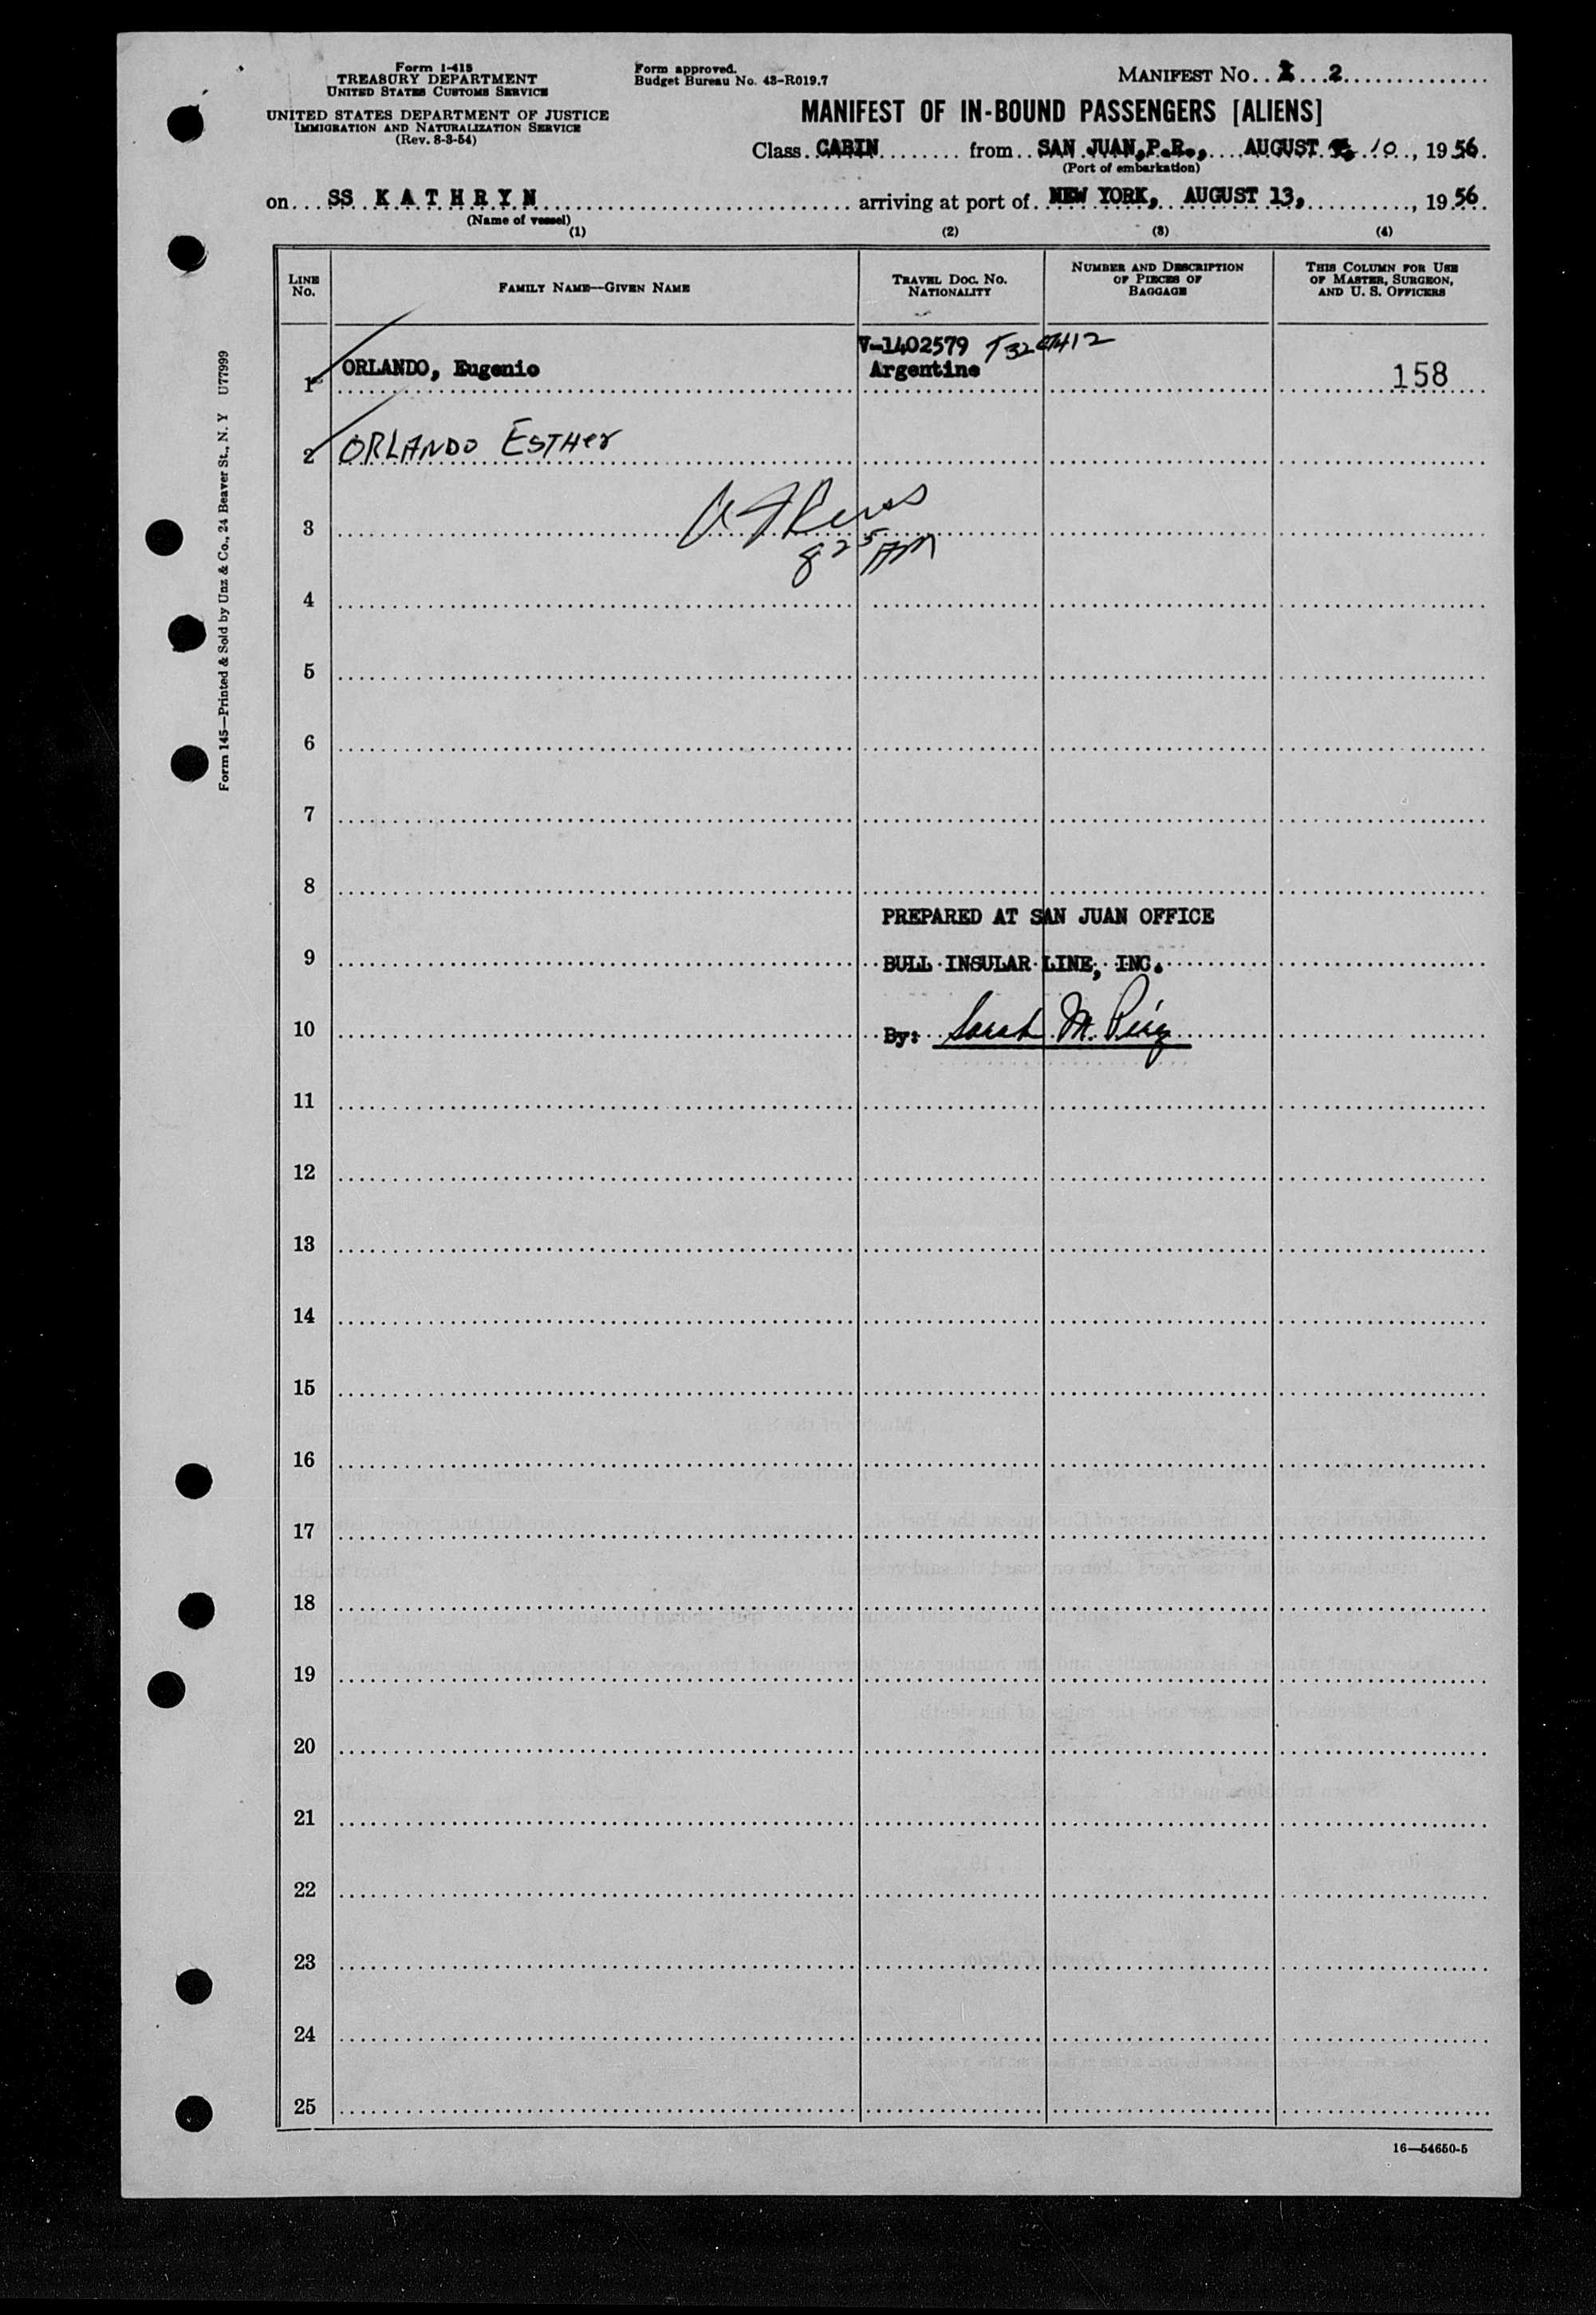 Form I-418
TREASURY DEPARTMENT
UNITED STATES CUSTOMS SERVICE
UNITED STATES DEPARTMENT OF JUSTICE
IMMIGRATION AND NATURALIZATION SERVICE
(Rev. 8-3-54)
Form approved.
Budget Bureau No. 43-R019.7
MANIFEST NO. 2
MANIFEST OF IN-BOUND PASSENGERS [ALIENS]
Class CABIN from SAN JUAN, P.R., AUGUST 10, 1956.
(Port of embarkation)
on SS KATHRYN arriving at port of NEW YORK, AUGUST 13, 1956.
(Name of vessel)
(1) (2) (3) (4)
LINE NO.
FAMILY NAME—GIVEN NAME
TRAVEL DOC. NO.
NATIONALITY
NUMBER AND DESCRIPTION
OF PIECES OF
BAGGAGE
THIS COLUMN FOR USE
OF MASTER, SURGEON,
AND U. S. OFFICERS
V-1402579
1 ORLANDO, Eugenio Argentine 158
2 ORLANDO ESTHer
3
825 AM
4
5
6
7
8
PREPARED AT SAN JUAN OFFICE
9 BULL INSULAR LINE, INC.
10 By: Sarah M.
11
12
13
14
15
16
17
18
19
20
21
22
23
24
25
16—54650-5
Form 145—Printed & Sold by Unz & Co., 24 Beaver St., N. Y U77999